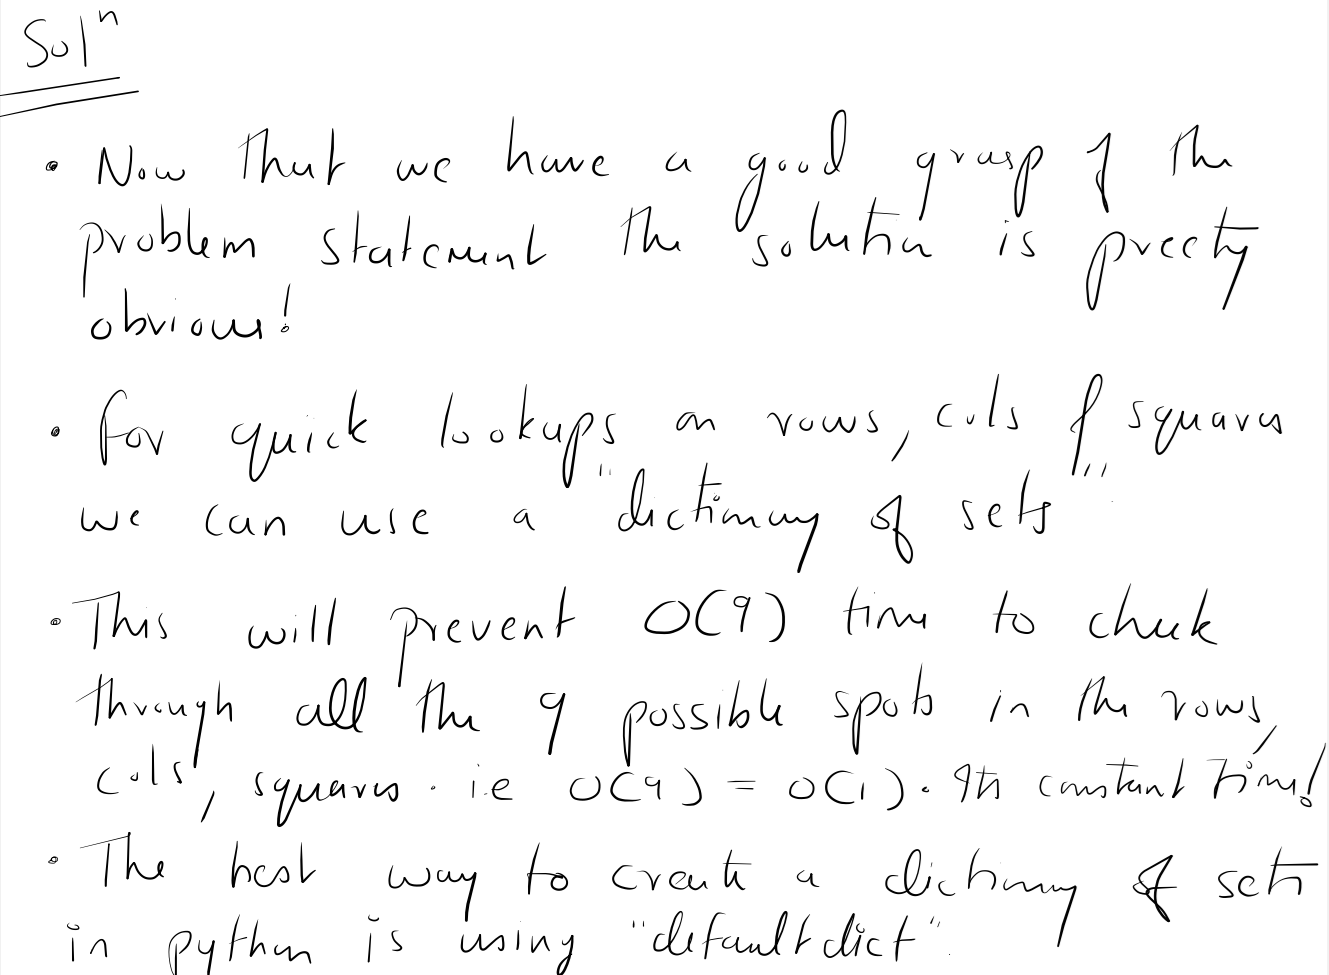 Solⁿ
• Now that we have a good grasp of the
problem statement the solution is preety
obvious!
• for quick lookups on rows, cols & squares
we can use a "dictionary of sets"
• This will prevent O(9) time to check
through all the 9 possible spots in the rows,
cols, squares. i.e O(9) = O(1). Its constant time!
• The best way to create a dictionary of sets
in python is using "defaultdict".